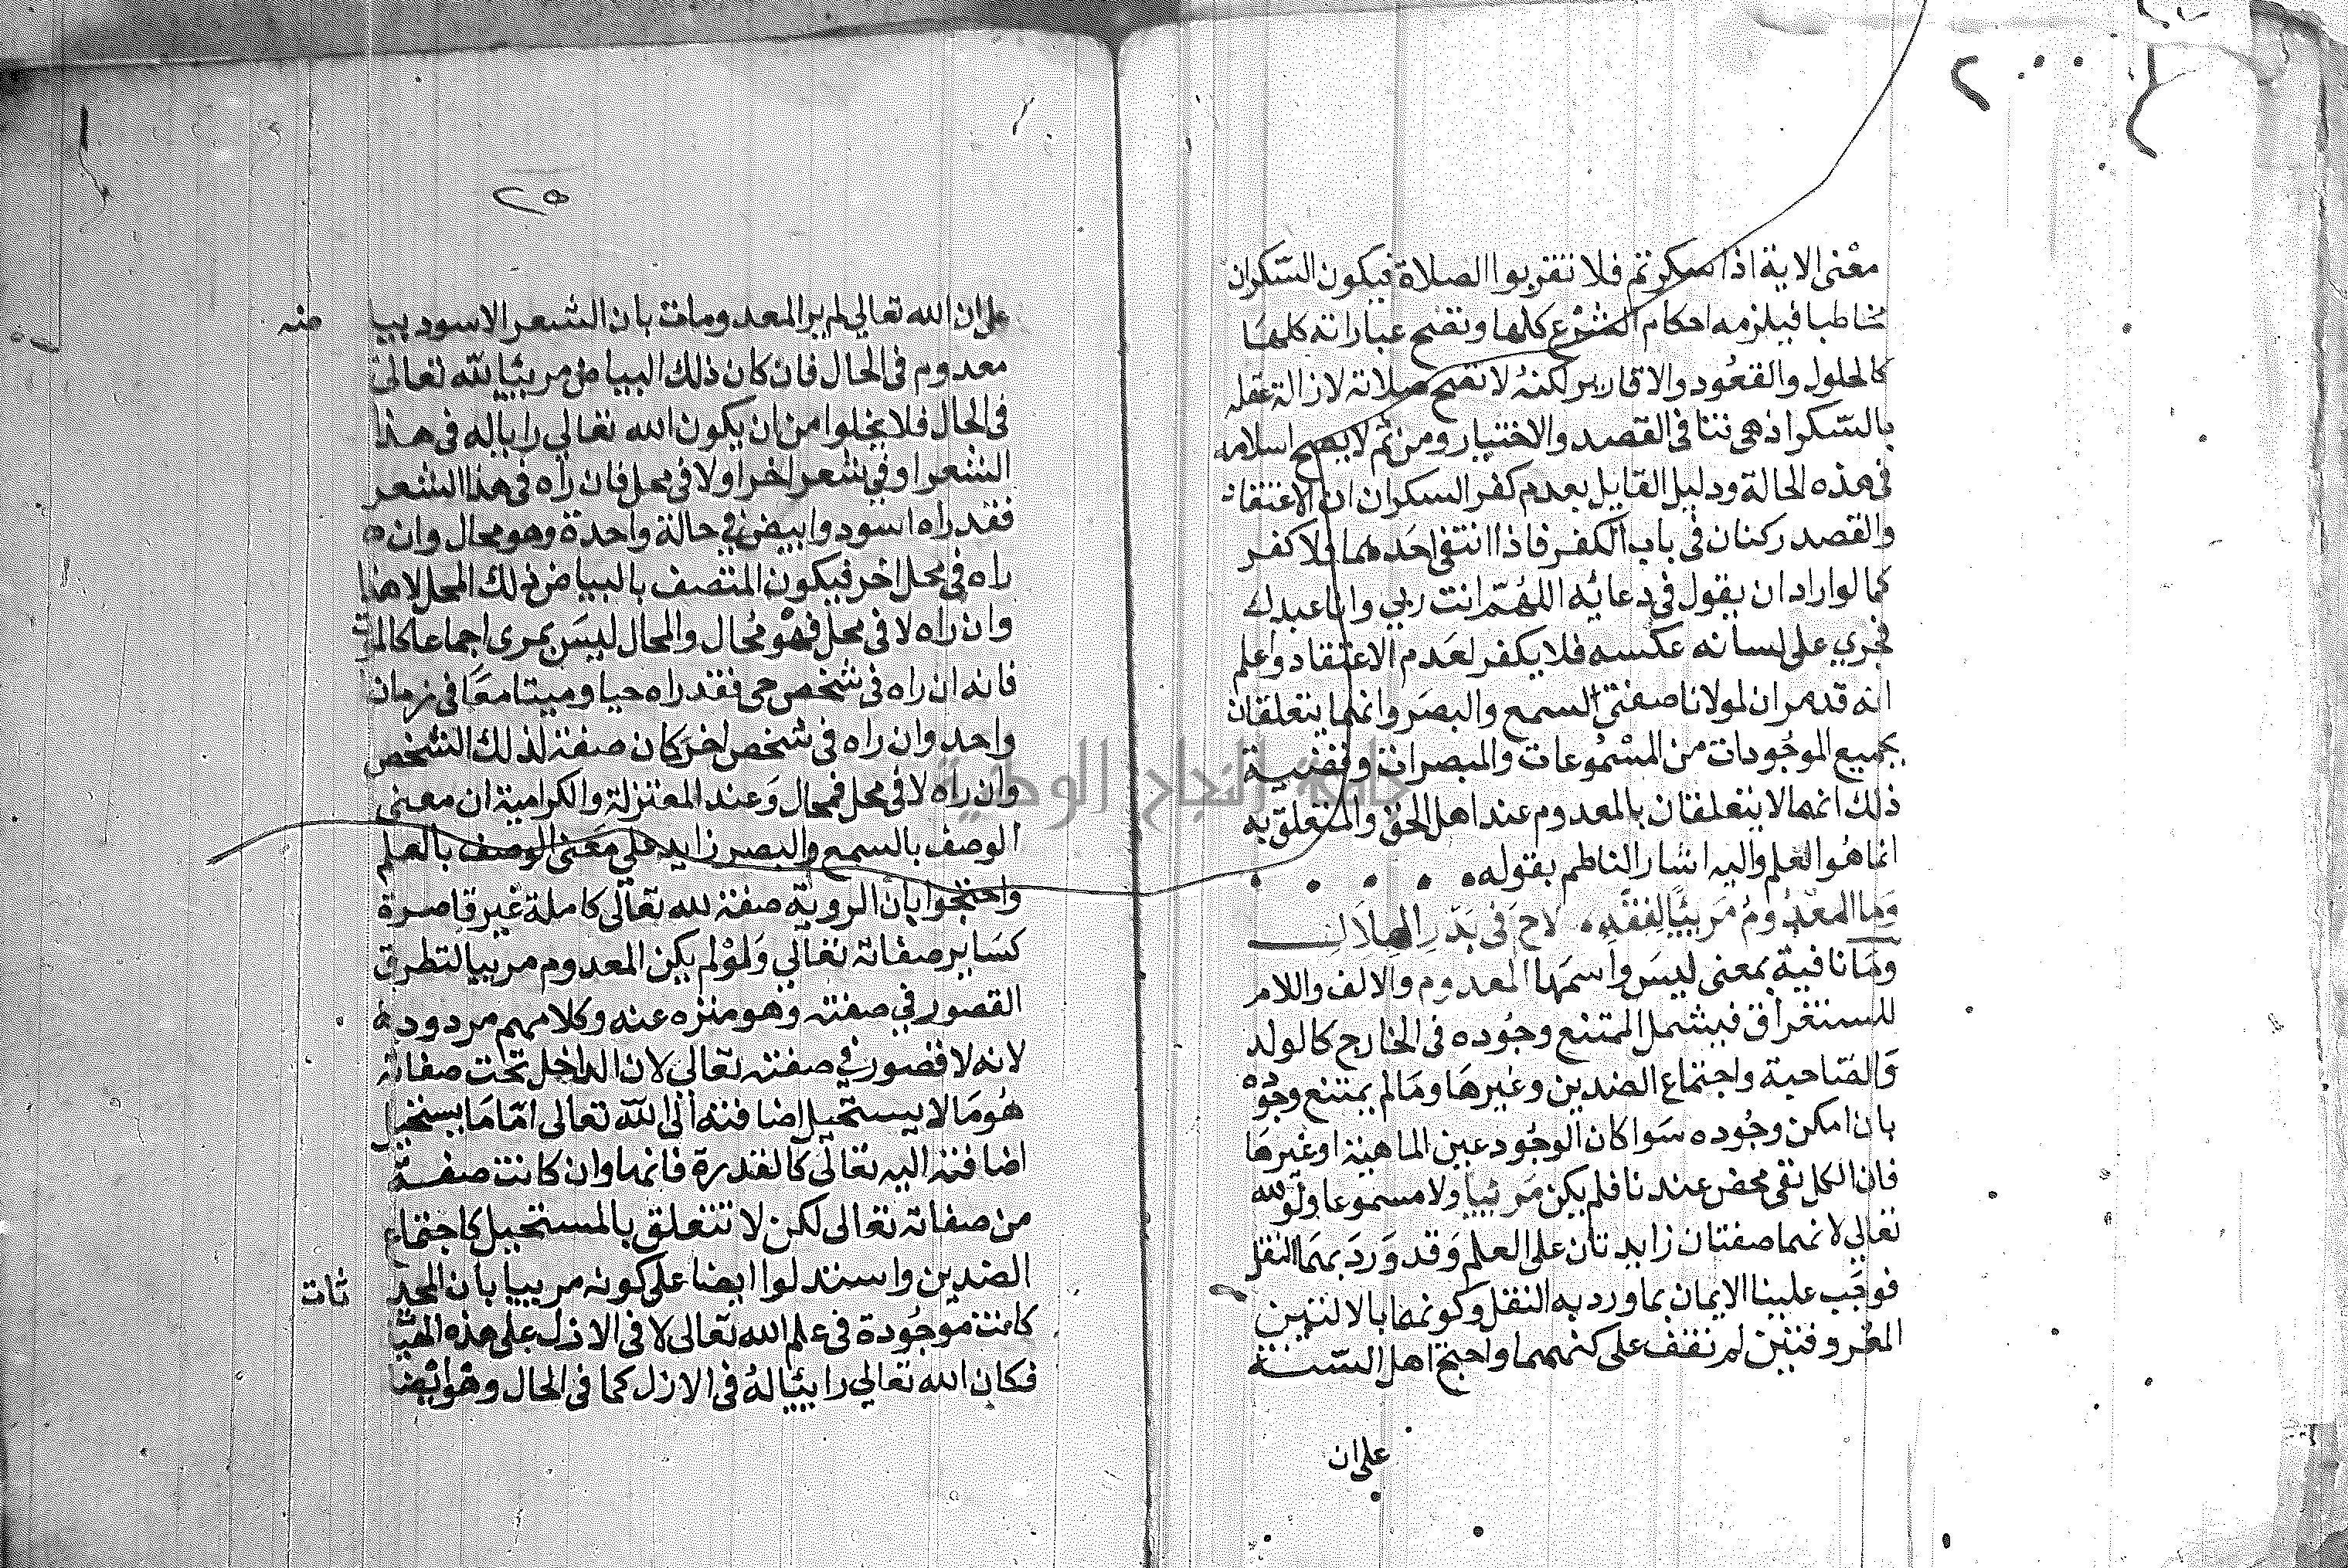 معنى الاية اذا سكرتم فلا تقربوا الصلاة فيكون السكران
مخاطبا فيلزمه احكام الشرع كلها وتصح عباراته كلها
كالحلول والقعود والاقارير لكنه لا تصح صلاته لازالة عقله
بالسكر اذ هي تنافى القصد والاختيار ومن ثم لا يصح اسلامه
فى هذه الحالة ودليل القايل بعدم كفر السكران ان الاعتقاد
والقصد ركنان فى باب الكفر فاذا انتفى احدهما فلا كفر
كما لو اراد ان يقول فى دعائه اللهم انت ربي وانا عبدك
فجري على لسانه عكسه فلا يكفر لعدم الاعتقاد واعلم
انه قد مر ان لمولانا صفتي السمع والبصر وانهما يتعلقان
بجميع الموجودات من المسموعات والمبصرات وقضية
ذلك انهما لا يتعلقان بالمعدوم عند اهل الحق والمتعلق به
انما هو العلم واليه اشار الناظم بقوله
وما المعدوم مرئيا لفقد لاح فى بدر الهلال
وما نافية بمعنى ليس واسمها المعدوم والالف واللام
للاستغراق فيشمل الممتنع وجوده فى الخارج كالولد
والصاحبة واجتماع الضدين وغيرها وما لم يمتنع وجوده
بان امكن وجوده سوا كان الوجود عين الماهية او غيرها
فان الكل نفى محض عندنا فلم يكن مرئيا ولا مسموعا ولو لله
تعالي لانهما صفتان زايدتان على العلم وقد ورد بهما النقل
فوجب علينا الايمان بما ورد به النقل وكونهما بالالتين
المعروفتين لم نقف على كنههما واحتج اهل السنة
على ان
٢٥
على ان الله تعالي لم ير المعدومات بان الشعر الاسود بيا ضه
معدوم فى الحال فان كان ذلك البياض مرئيا لله تعالى
فى الحال فلا يخلوا من ان يكون الله تعالي رايا له فى هذا
الشعر او في شعر اخر او لا فى محل فان راه فى هذا الشعر
فقد راه اسود وابيض في حالة واحدة وهو محال وان ه
راه فى محل اخر فيكون المتصف بالبياض ذلك المحل لا هذا
وان راه لا فى محل فهو محال والمحال ليس بمرى اجماعا
فانه ان راه فى شخص حى فقد راه حيا وميتا معا فى زمان
واحد وان راه فى شخص اخر كان صفة لذلك الشخص
وان راه لا فى محل فمحال وعند المعتزلة والكرامية ان معنى
الوصف بالسمع والبصر زايد على معنى الوصف بالعلم
واحتجوا بان الروية صفة لله تعالى كاملة غير قاصرة
كساير صفاته تعالي ولو لم يكن المعدوم مرييا لتطرق
القصور في صفته وهو منزه عنه وكلامهم مردود ه
لانه لا قصور في صفته تعالى لان الداخل تحت صفاته
هو ما لا يستحيل اضافته الى الله تعالى اما ما يستحيل
اضافته اليه تعالى كالقدرة فانها وان كانت صفة
من صفاته تعالى لكن لا تتعلق بالمستحيل كاجتماع
الضدين واستدلوا ايضا على كونه مرييا بان المحد ثات
كانت موجودة فى علم الله تعالى لا فى الازل على هذه
فكان الله تعالي رائيا له فى الازل كما فى الحال وهو ايضا
جامعة النجاح الوطنية